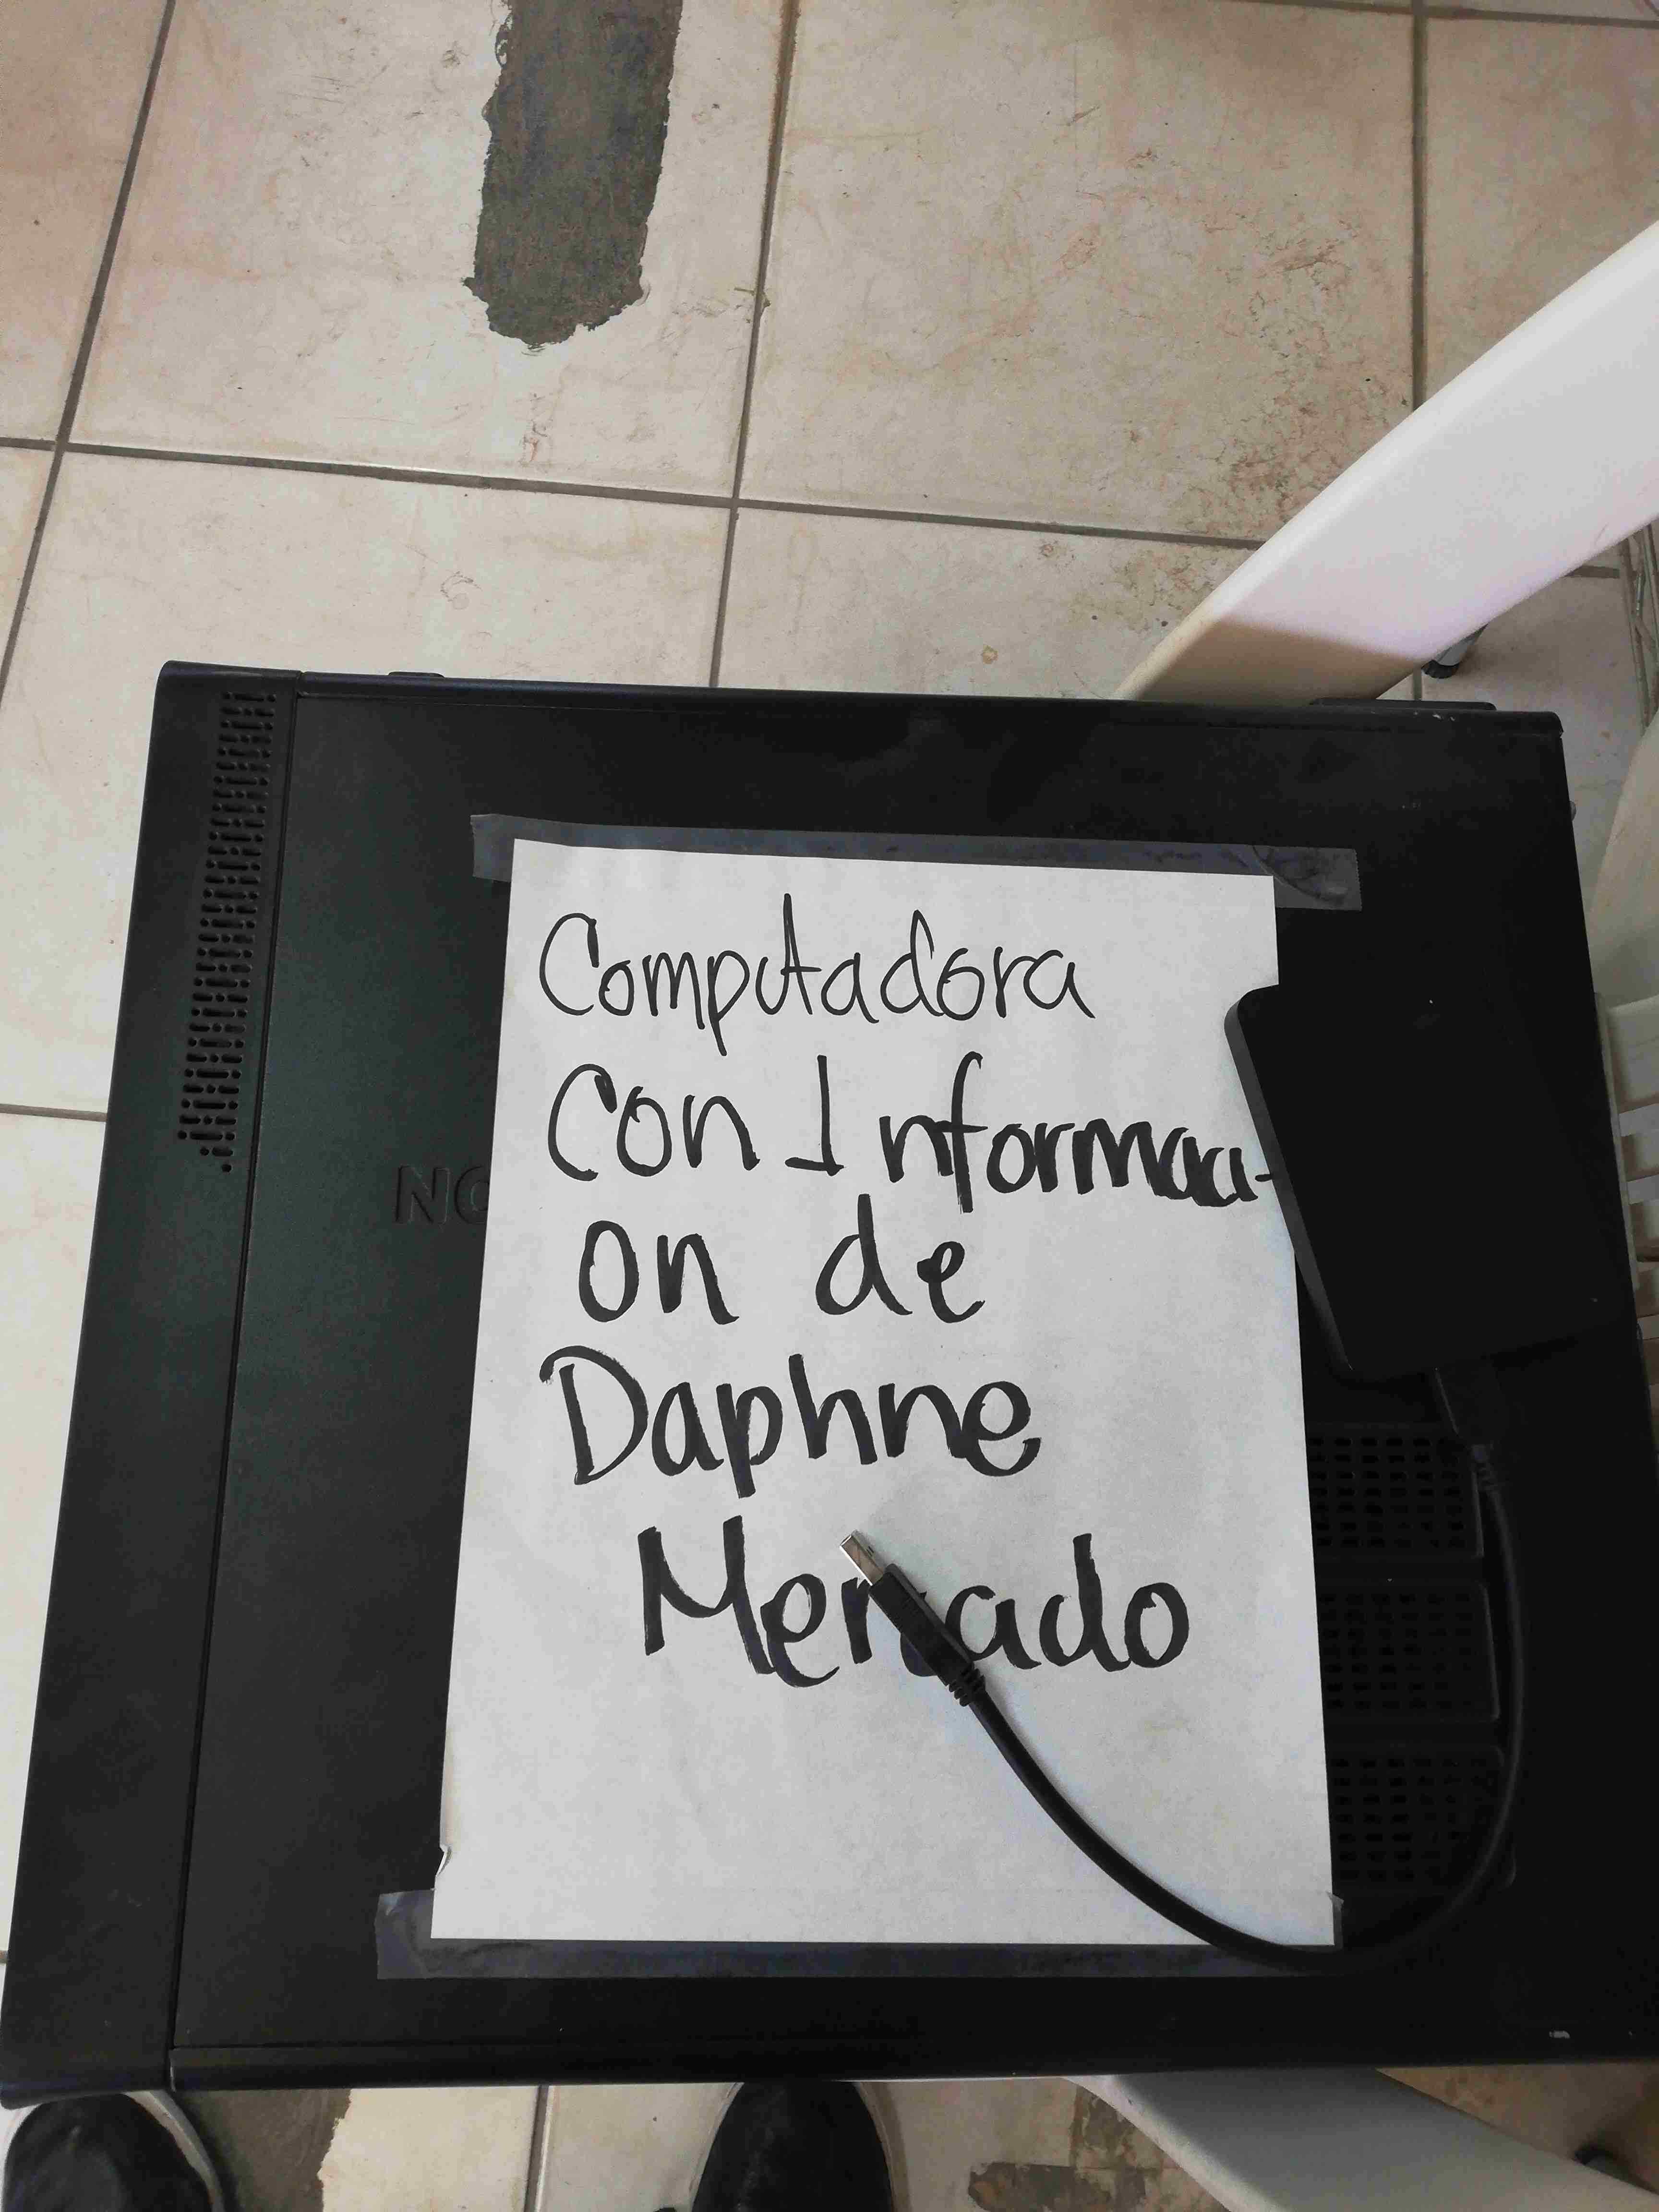 Computadora
Con Informaci-
on de
Daphne
Mercado